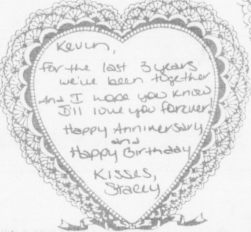 Kevin,
For the last 3 years
we've been together
And I hope you know
I'll love you forever.
Happy Anniversary
and
Happy Birthday
Kisses,
Stacey